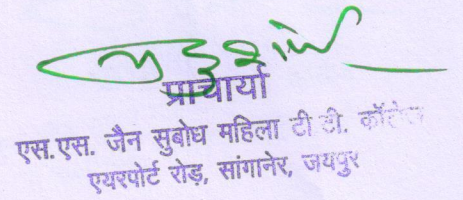 प्राचार्या
एस.एस. जैन सुबोध महिला टी टी. कॉलेज
एयरपोर्ट रोड़, सांगानेर, जयपुर